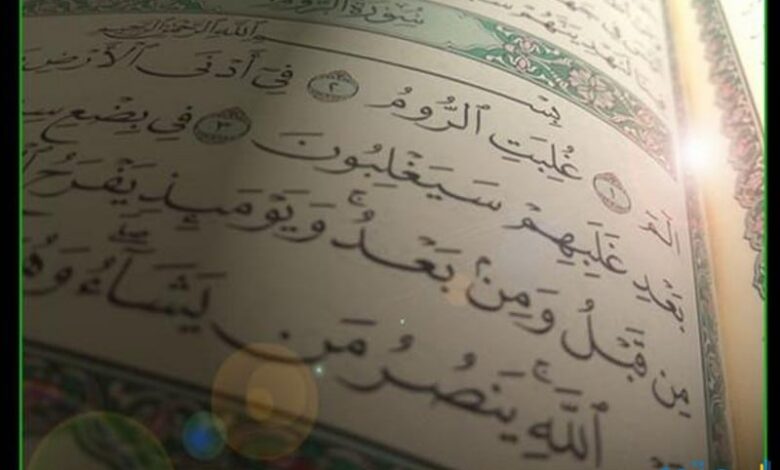 لَنَهْدِيَنَّهُمْ
سُورَةُ الرُّومِ
بِسْمِ ٱللَّهِ ٱلرَّحْمَٰنِ ٱلرَّحِيمِ
الٓمٓ ١ غُلِبَتِ ٱلرُّومُ ٢ فِىٓ أَدْنَى ٱلْأَرْضِ
بَعْدِ غَلَبِهِمْ سَيَغْلِبُونَ ٣ فِى بِضْعِ
مِن قَبْلُ وَمِنۢ بَعْدُ ۚ وَيَوْمَئِذٍ يَفْرَحُ
ٱللَّهِ ۚ يَنصُرُ مَن يَشَآءُ ۖ